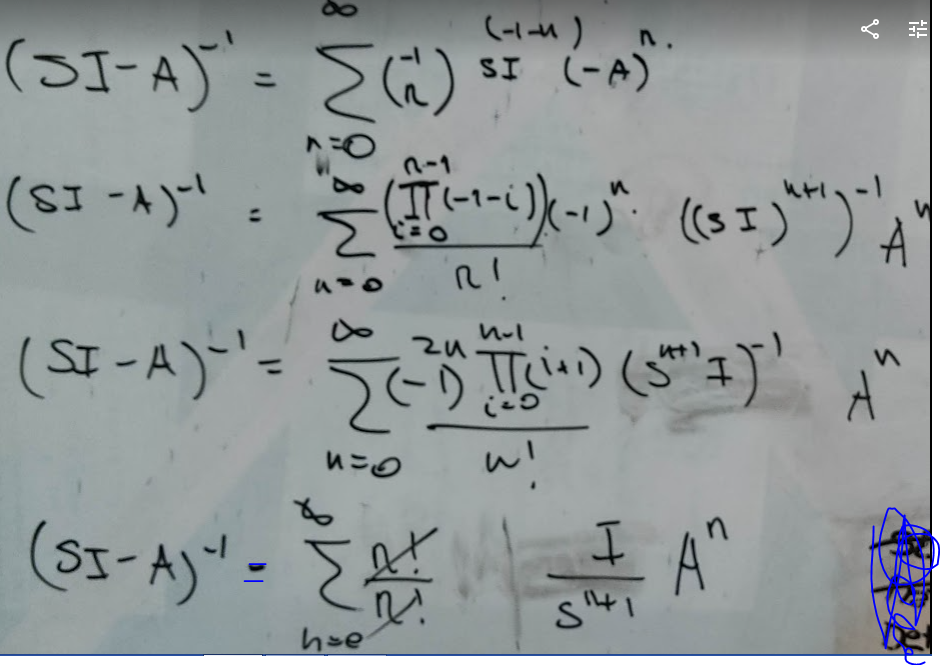 (SI-A)⁻¹ = ∑_{n=0}^{∞} (⁻¹ₙ) SI^{(-1-n)} (-A)ⁿ.
(SI-A)⁻¹ = ∑_{n=0}^{∞} (∏_{i=0}^{n-1} (-1-i))/n! (-1)ⁿ· ((SI)ⁿ⁺¹)⁻¹ Aⁿ
(SI-A)⁻¹ = ∑_{n=0}^{∞} (-1)²ⁿ ∏_{i=0}^{n-1} (i+1)/n! (Sⁿ⁺¹ I)⁻¹ Aⁿ
(SI-A)⁻¹ = ∑_{n=0}^{∞} n!/n! I/Sⁿ⁺¹ Aⁿ